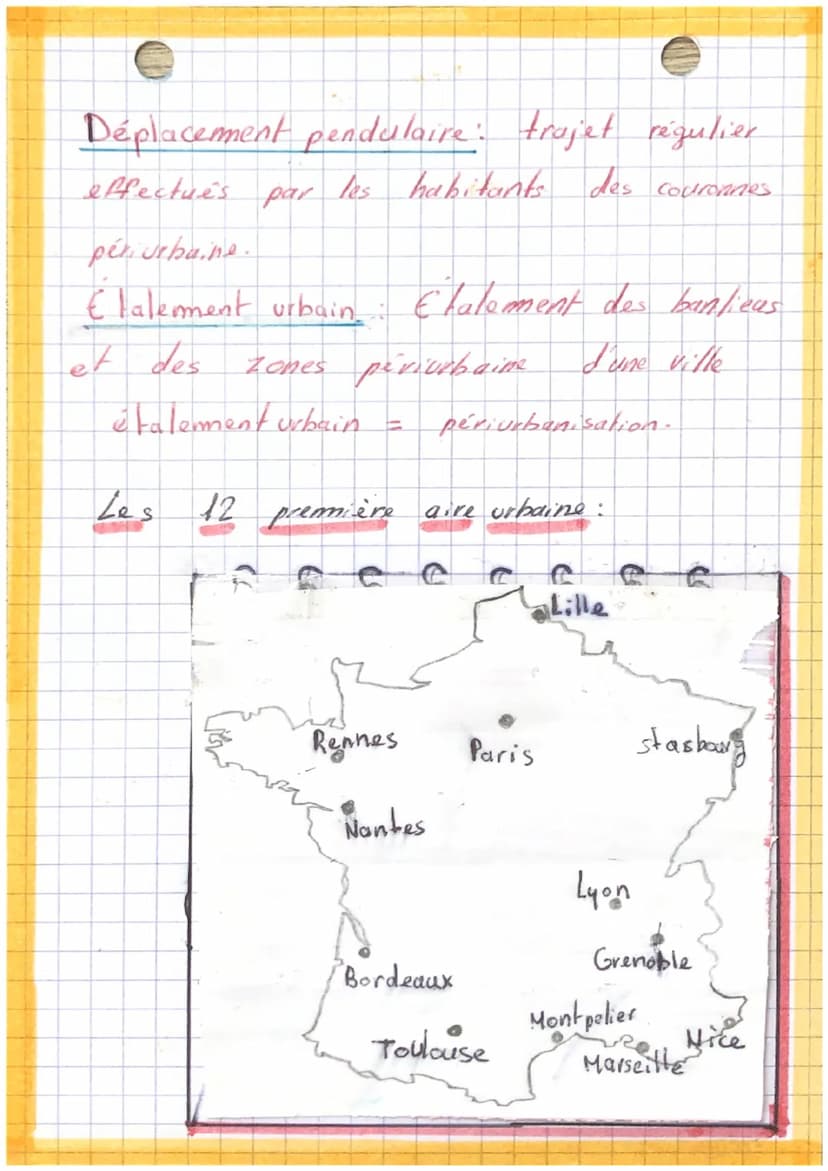 Déplacement pendulaire : trajet régulier
effectués par les habitants des couronnes
périurbaine.
Étalement urbain : Étalement des banlieus
et des zones périurbaine d'une ville
étalement urbain = périurbanisation.
Les 12 première aire urbaine :
Lille
Rennes
Paris
stasbourg
Nantes
Lyon
Grenoble
Bordeaux
Montpelier
Toulouse
Nice
Marseille